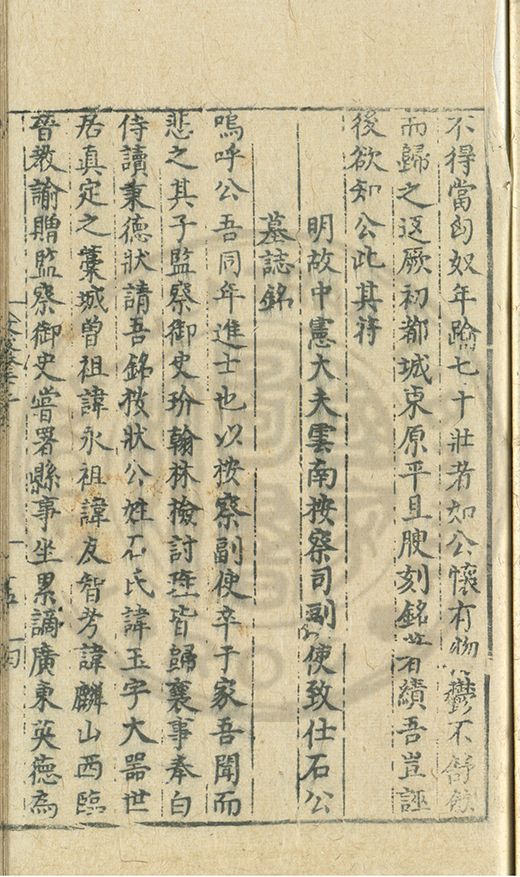 不得當匈奴年踰七十壯者如公懷有物鬱不舒斂
而歸之返厥初都城東原平且腴刻銘有績吾豈誣
後欲知公此其符
明故中憲大夫雲南按察司副使致仕石公
墓誌銘
嗚呼公吾同年進士也以按察副使卒于家吾聞而
悲之其子監察御史玠翰林檢討珤皆歸襄事奉白
侍讀秉德狀請吾銘按狀公姓石氏諱玉字大器世
居真定之藁城曾祖諱永祖諱友智考諱麟山西臨
晉教諭贈監察御史嘗署縣事坐累謫廣東英德為